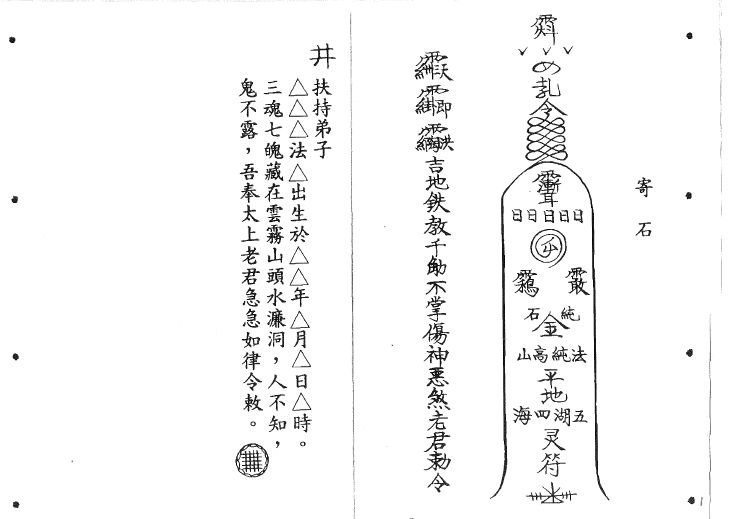 寄石
令
日日日日日
石 純
金
山高純法
平地
海四湖五
灵符
吉地鉄教千助不掌傷神惡煞老君勅令
井
扶持弟子
△△△法△出生於△△年△月△日△時。
三魂七魄藏在雲霧山頭水濂洞，人不知，
鬼不露，吾奉太上老君急急如律令敕。
1